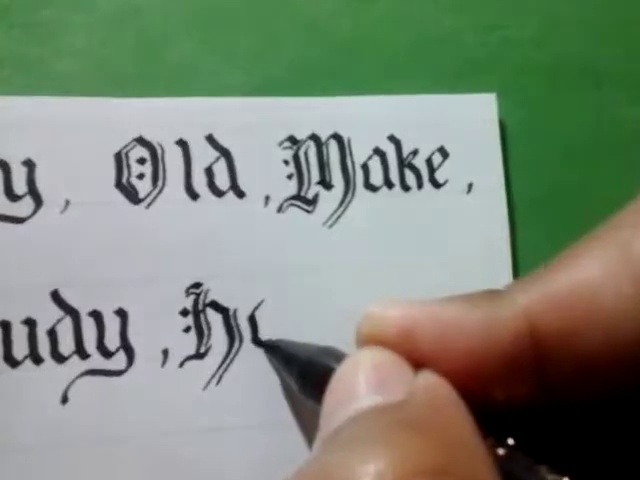 y, Old, Make,
udy, H